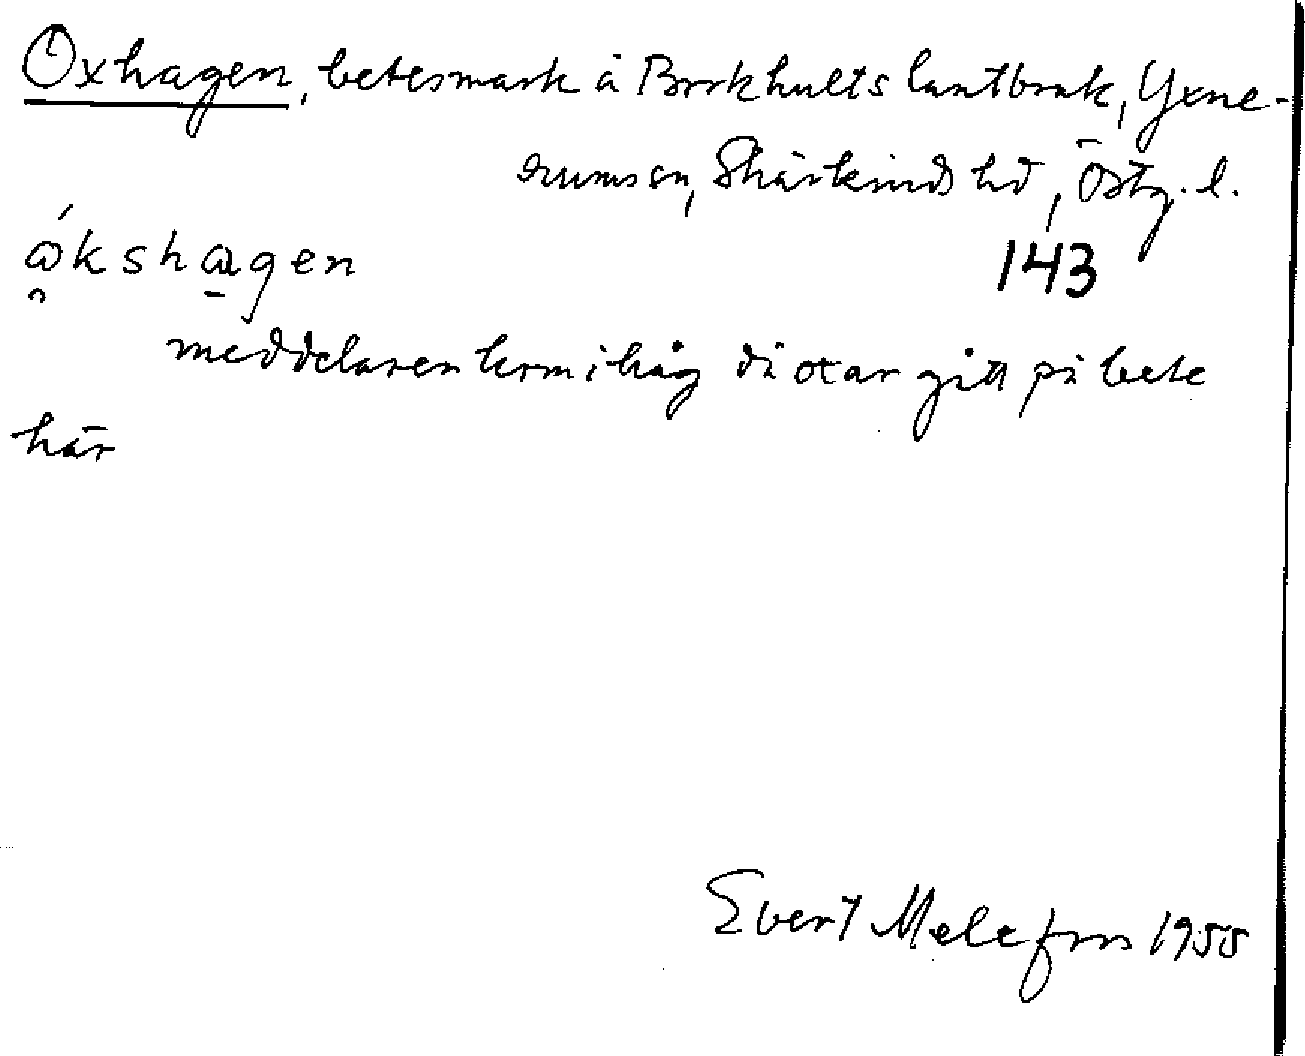 Oxhagen, betesmark å Borkhults lantbruk, Yxne-
rums sn, Skärkinds hd, Östg. l.
ókshagen 143
meddelaren kom ihåg då oxar gått på bete
här
Evert Melefors 1955